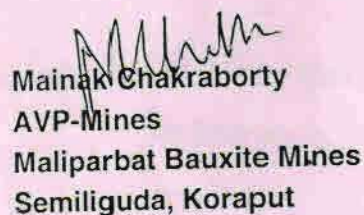 Mainak Chakraborty
AVP-Mines
Maliparbat Bauxite Mines
Semiliguda, Koraput